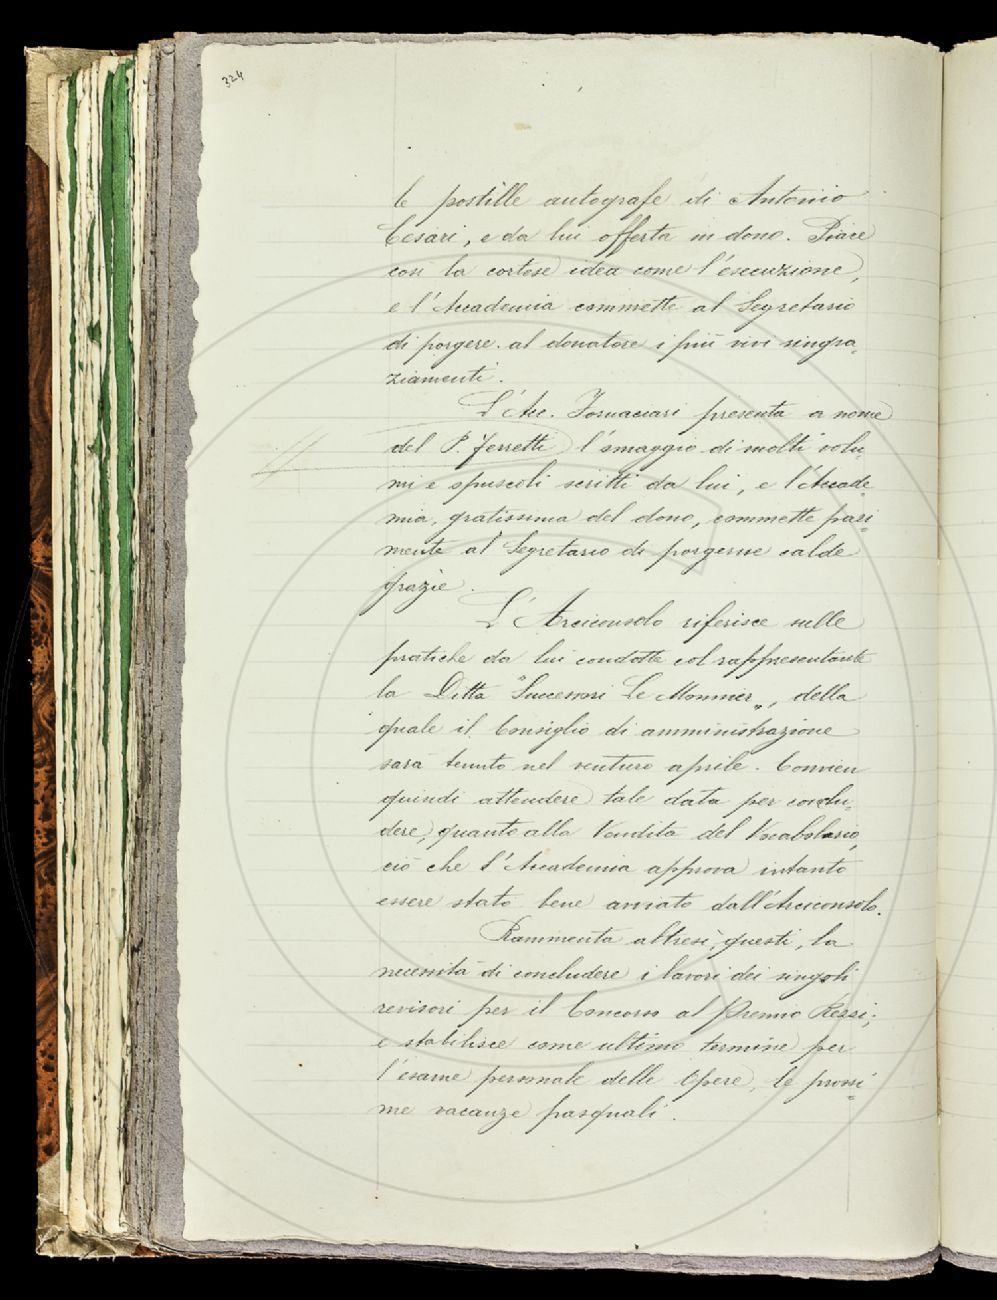 324
le postille autografe di Antonio
Cesari, e da lui offerta in dono. Piace
così la cortese idea come l'esecuzione,
e l'Accademia commette al Segretario
di porgere al donatore i più vivi ringra=
ziamenti.
L'Acc. Fornaciari presenta a nome
del P. Ferretti l'omaggio di molti volu=
mi e opuscoli scritti da lui, e l'Accade=
mia, gratissima del dono, commette pari=
mente al Segretario di porgerne calde
grazie.
L'Arciconsolo riferisce sulle
pratiche da lui condotte col rappresentante
la Ditta "Successori Le Monnier„, della
quale il Consiglio di amministrazione
sarà tenuto nel venturo aprile. Convien
quindi attendere tale data per conclu=
dere, quanto alla Vendita del Vocabolario,
ciò che l'Accademia approva intanto
essere stato bene avviato dall'Arciconsolo.
Rammenta altresì, questi, la
necessità di concludere i lavori dei singoli
revisori per il Concorso al Premio Rezzi;
e stabilisce come ultimo termine per
l'esame personale delle Opere, le prossi=
me vacanze pasquali.